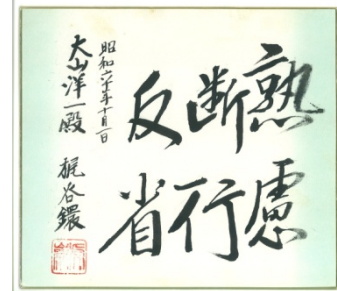 熟慮
断行
反省
昭和六十年十月一日
大山洋一殿
梶谷鐶